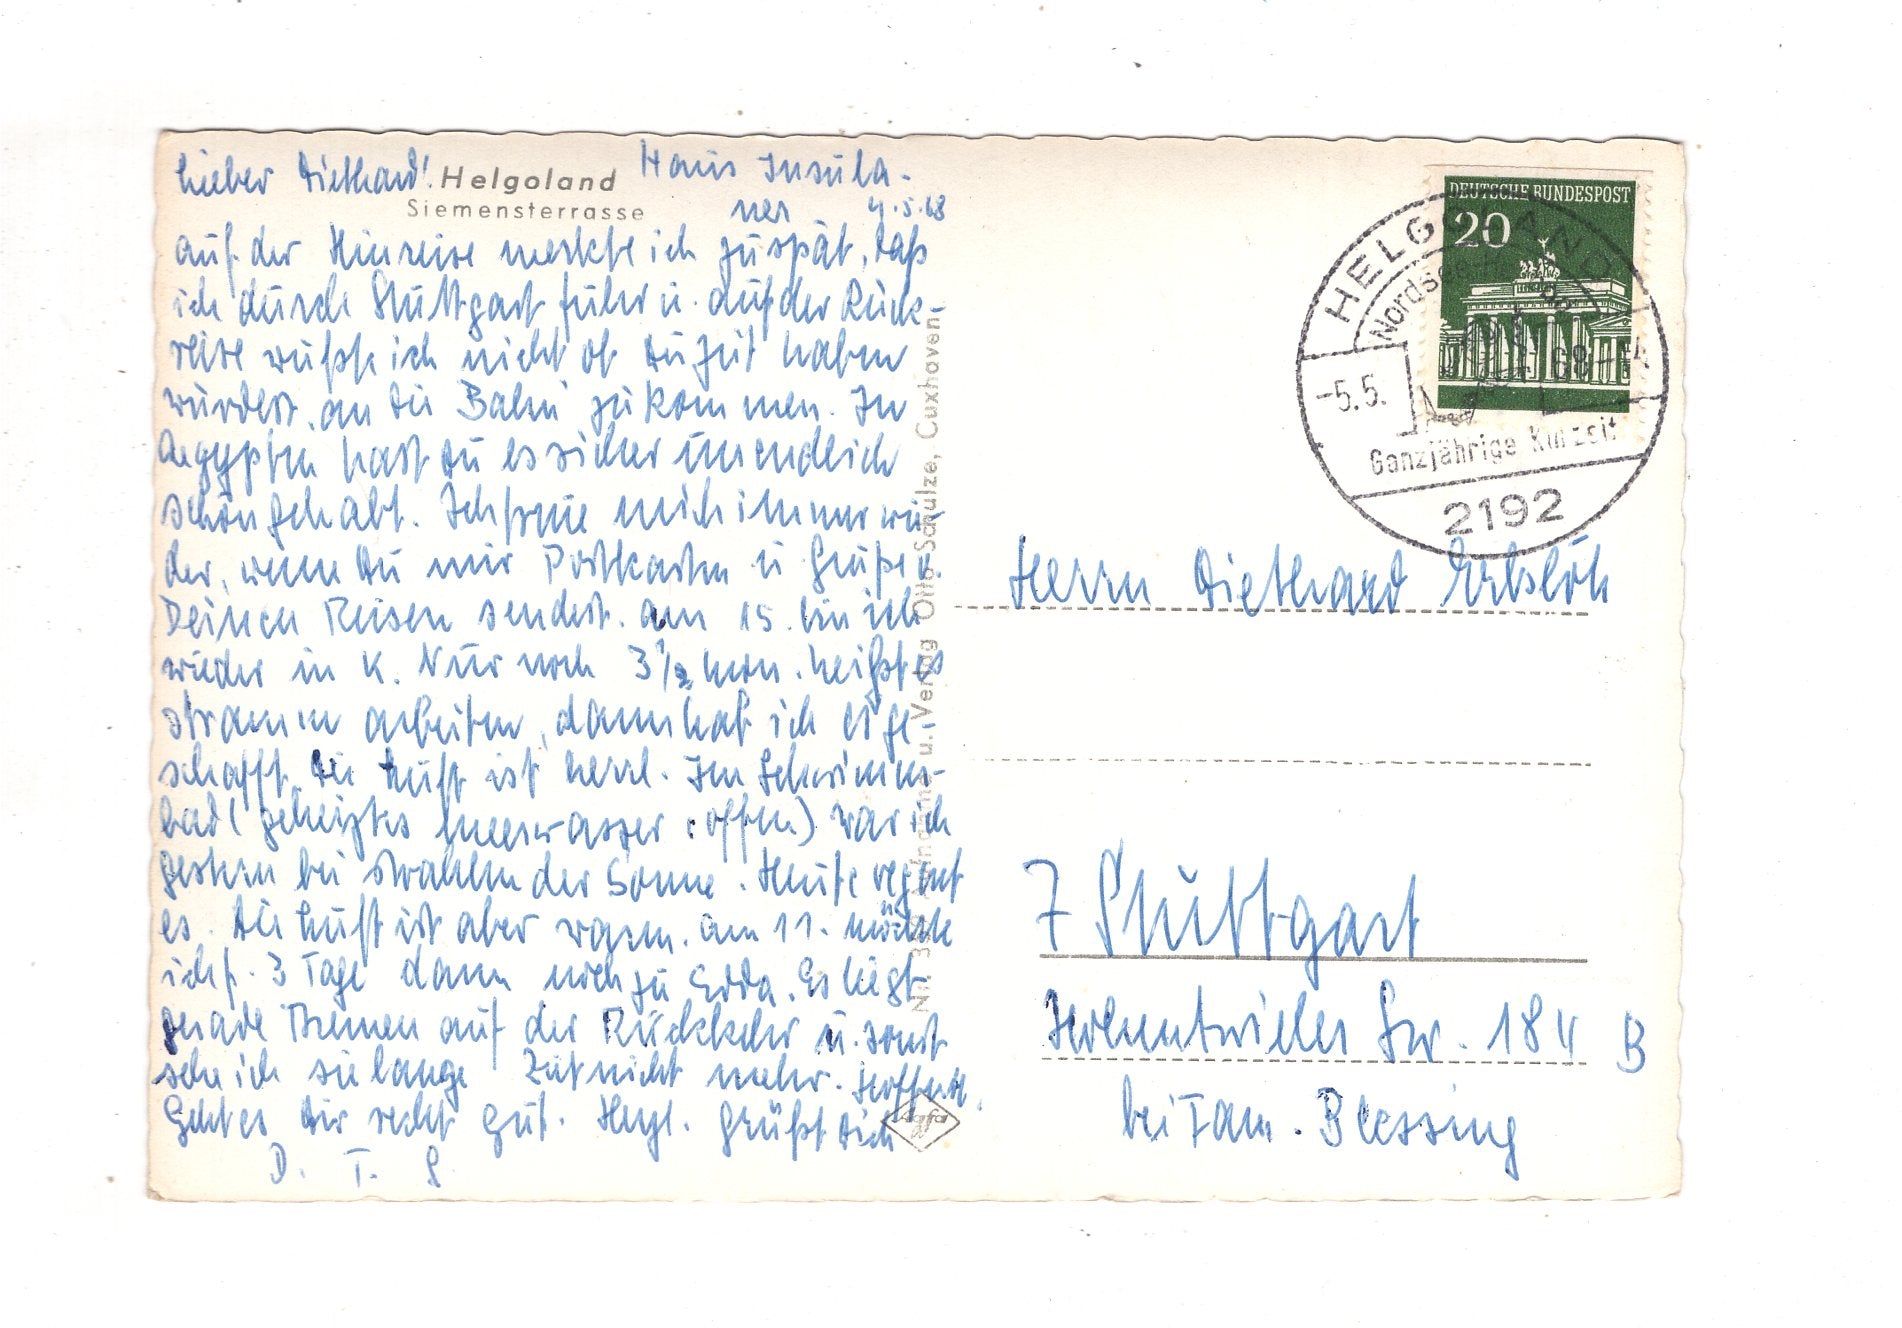 Lieber Diethard! Haus Insula-
ner 4.5.68
Helgoland
Siemensterrasse
auf der Hinreise merkte ich zu spät, daß
ich durch Stuttgart fuhr u. auf der Rück-
reise wußte ich nicht ob Du Zeit haben
würdest, an die Bahn zu kommen. In
Aegypten hast Du es sicher unendlich
schön gehabt. Ich freue mich immer wie-
der, wenn Du mir Postkarten u Grüße v.
Deinen Reisen sendest. Am 15. bin ich
wieder in K. Nur noch 3 1/2 Mon. heißt es
stramm arbeiten, dann hab ich es ge-
schafft. Die Luft ist herrl. Im Schwimm-
bad (geheiztes Meerwasser: offen) war ich
gestern bei strahlender Sonne. Heute regnet
es. Die Luft ist aber warm. Am 11. möchte
ich f. 3 Tage dann noch zu Edda. Es liegt
gerade Bremen auf der Rückkehr u. sonst
sehe ich sie lange Zeit nicht mehr. Hoffentl.
geht es Dir recht gut. Herzl. grüßt Dich
D. T. G
Aufnahme u. Verlag Otto Schulze, Cuxhaven
Agfa
DEUTSCHE BUNDESPOST
20
HELGOLAND
-5.5.68
Ganzjährige Kurzeit
2192
Herrn Diethard Erbslöh
7 Stuttgart
Hohentwieler Str. 184 B
bei Fam. Blessing